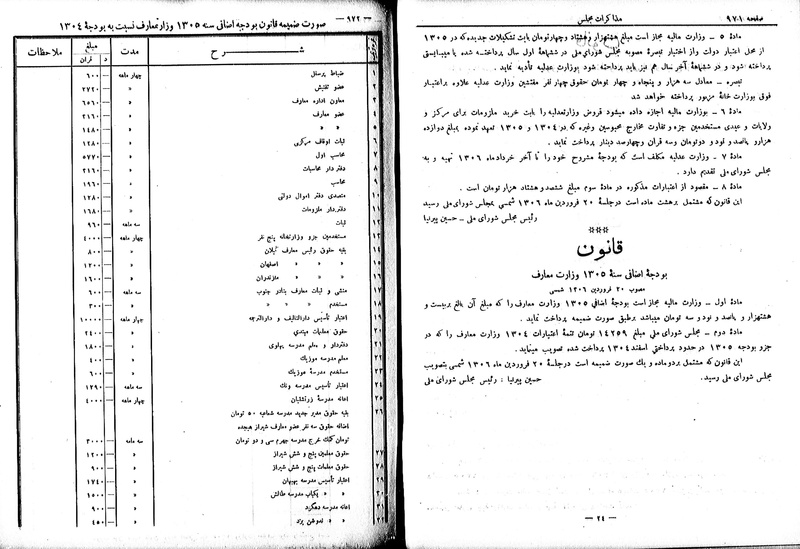 صفحه ۹۷۰۱
مذاکرات مجلس
مادهٔ ۵ ـ وزارت مالیه مجاز است مبلغ هشتهزار و هشتاد و چهار تومان بابت تشکیلات جدیده که در ۱۳۰۵
از محل اعتبار دولت و از اختیار تبصرهٔ مصوبه مجلس شورای ملی در ششماههٔ اول سال پرداخته شده یا میبایستی
پرداخته شود و در ششماههٔ آخر سال هم نیز باید پرداخته شود بوزارت عدلیه تأدیه نماید .
تبصره ـ معادل سه هزار و پنجاه و چهار تومان حقوق چهار نفر مفتشین وزارت عدلیه علاوه بر اعتبار
فوق بوزارت خانهٔ مزبور پرداخته خواهد شد
مادهٔ ۶ ـ بوزارت مالیه اجازه داده میشود قروض وزارتعدلیه را بابت خرید ملزومات برای مرکز و
ولایات و عیدی مستخدمین جزو و تفاوت مخارج محبوسین وغیره که در ۱۳۰۴ و ۱۳۰۵ تعهد نموده بمبلغ دوازده
هزار و پانصد و نود و دو تومان و سه قران و چهارصد دینار پرداخت نماید .
مادهٔ ۷ ـ وزارت عدلیه مکلف است که بودجهٔ مشروح خود را تا آخر خرداد ماه ۱۳۰۶ تهیه و به
مجلس شورای ملی تقدیم دارد .
مادهٔ ۸ ـ مقصود از اعتبارات مذکوره در مادهٔ سوم مبلغ ششصد و هشتاد هزار تومان است .
این قانون که مشتمل بر هشت ماده است در جلسهٔ ۲۰ فروردین ماه ۱۳۰۶ شمسی بمجلس شورای ملی رسید
رئیس مجلس شورای ملی ـ حسین پیرنیا
***
قانون
بودجهٔ اضافی سنهٔ ۱۳۰۵ وزارت معارف
مصوب ۲۰ فروردین ۱۳۰۶ شمسی
مادهٔ اول ـ وزارت مالیه مجاز است بودجهٔ اضافی ۱۳۰۵ وزارت معارف را که مبلغ آن بالغ بر بیست و
هشتهزار و پانصد و نود و سه تومان میباشد بر طبق صورت ضمیمه پرداخت نماید .
مادهٔ دوم ـ مجلس شورای ملی مبلغ ۱۴۲۵۹ تومان تتمهٔ اعتبارات ۱۳۰۴ وزارت معارف را که در
جزو بودجه ۱۳۰۵ در حدود پرداختی اسفند ۱۳۰۴ پرداخت شده تصویب مینماید .
این قانون که مشتمل بر دو ماده و یک صورت ضمیمه است در جلسهٔ ۲۰ فروردین ماه ۱۳۰۶ شمسی بتصویب
مجلس شورای ملی رسید .
حسین پیرنیا : رئیس مجلس شورای ملی
— ۲۴ —
— ۹۷۲ —
صورت ضمیمه قانون بودجه اضافی سنه ۱۳۰۵ وزارتمعارف نسبت به بودجهٔ ۱۳۰۴
شرح مدت مبلغ ملاحظات
قران د
۱ ضباط پرسنل چهار ماهه ۶۰۰ —
۲ عضو تفتیش » ۲۷۲۰ —
۳ معاون اداره معارف » ۶۰۶۰ —
۴ عضو معارف » ۲۱۶۰ —
۵ » » » ۱۴۸۰ —
۶ ثبات اوقاف مرکزی » ۱۲۸۰ —
۷ محاسب اول » ۵۷۷۰ —
۸ دفتر دار محاسبات » ۲۱۶۰ —
۹ محاسب » ۱۹۶۰ —
۱۰ متصدی دفتر اموال دولتی » ۱۲۸۰ —
۱۱ دفتر دار ملزومات » ۱۶۸۰ —
۱۲ ثبات سه ماهه ۹۶۰ —
۱۳ مستخدمین جزو وزارتخانه پنج نفر چهار ماهه ۴۰۰۰ —
۱۴ بقیه حقوق رئیس معارف گیلان » ۸۰۰ —
۱۵ » » » » اصفهان » ۱۲۰۰ —
۱۶ » » » » مازندران » ۱۶۰۰ —
۱۷ منشی و ثبات معارف بنادر جنوب سه ماهه
۱۸ مستخدم » » » » ۳۰۰ —
۱۹ اعتبار تأسیس دارالتالیف و دارالترجه چهار ماهه ۱۰۰۰۰ —
۲۰ حقوق معلمات مبتدی » ۲۴۰۰ —
۲۱ دفتردار و معلم مدرسه پهلوی » ۱۸۰۰ —
۲۲ معلم مدرسه موزیک » ۴۰۰ —
۲۳ مستخدم مدرسهٔ موزیک » ۶۰۰ —
۲۴ اعتبار تأسیس مدرسه ونک سه ماهه ۱۲۹۰ —
۲۵ اعانه مدرسهٔ زرتشتیان چهار ماهه ۴۰۰۰ —
۲۶ بقیه حقوق مدیر جدید مدرسه شعاعیه ۵۰ تومان
اضافه حقوق سه نفر عضو معارف شیراز هیجده
تومان کمک خرج مدرسه جهرم سی و دو تومان سه ماهه ۳۰۰۰ —
۲۷ حقوق معلمین پنج و شش شیراز » ۱۸۰۰ —
۲۸ حقوق معلمات پنج و شش شیراز » ۹۰۰ —
۲۹ اعتبار تأسیس مدرسه بهبهان » ۱۷۴۰ —
۳۰ » » یکباب مدرسه طالش » ۱۵۰۰ —
۳۱ اعانه مدرسه دهگرد » ۹۰۰ —
۳۲ یزد » ۴۵۰ —